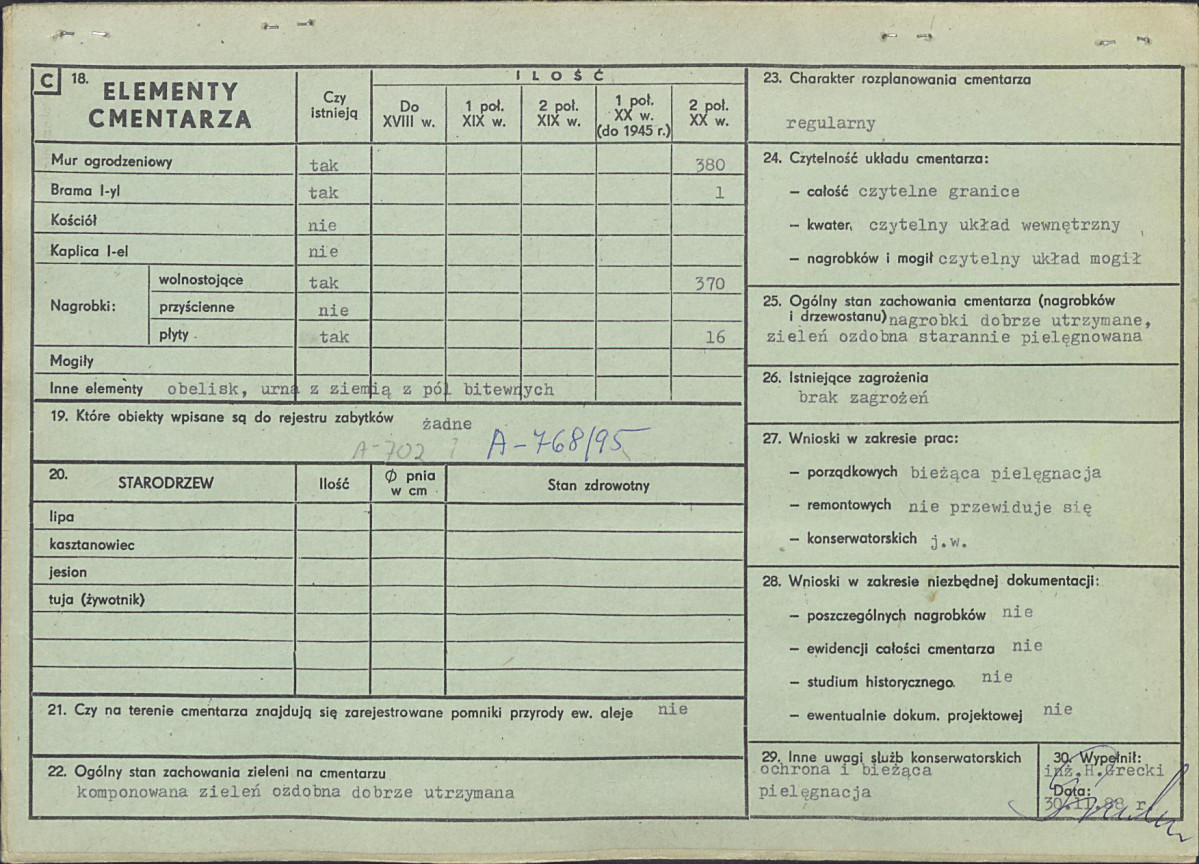 C 18. ELEMENTY CMENTARZA
Czy istnieją
ILOŚĆ
Do XVIII w.
1 poł. XIX w.
2 poł. XIX w.
1 poł. XX w. (do 1945 r.)
2 poł. XX w.
Mur ogrodzeniowy tak 380
Brama I-yl tak 1
Kościół nie
Kaplica I-el nie
Nagrobki:
wolnostojące tak 370
przyścienne nie
płyty tak 16
Mogiły
Inne elementy obelisk, urna z ziemią z pól bitewnych
19. Które obiekty wpisane są do rejestru zabytków żadne
A-702 ? A-768/95
20. STARODRZEW Ilość Ø pnia w cm Stan zdrowotny
lipa
kasztanowiec
jesion
tuja (żywotnik)
21. Czy na terenie cmentarza znajdują się zarejestrowane pomniki przyrody ew. aleje nie
22. Ogólny stan zachowania zieleni na cmentarzu
komponowana zieleń ozdobna dobrze utrzymana
23. Charakter rozplanowania cmentarza
regularny
24. Czytelność układu cmentarza:
– całość czytelne granice
– kwater, czytelny układ wewnętrzny
– nagrobków i mogił czytelny układ mogił
25. Ogólny stan zachowania cmentarza (nagrobków
i drzewostanu) nagrobki dobrze utrzymane,
zieleń ozdobna starannie pielęgnowana
26. Istniejące zagrożenia
brak zagrożeń
27. Wnioski w zakresie prac:
– porządkowych bieżąca pielęgnacja
– remontowych nie przewiduje się
– konserwatorskich j.w.
28. Wnioski w zakresie niezbędnej dokumentacji:
– poszczególnych nagrobków nie
– ewidencji całości cmentarza nie
– studium historycznego. nie
– ewentualnie dokum. projektowej nie
29. Inne uwagi służb konserwatorskich
ochrona i bieżąca
pielęgnacja
30. Wypełnił:
inż.H.Grecki
Data:
30.11.88 r.